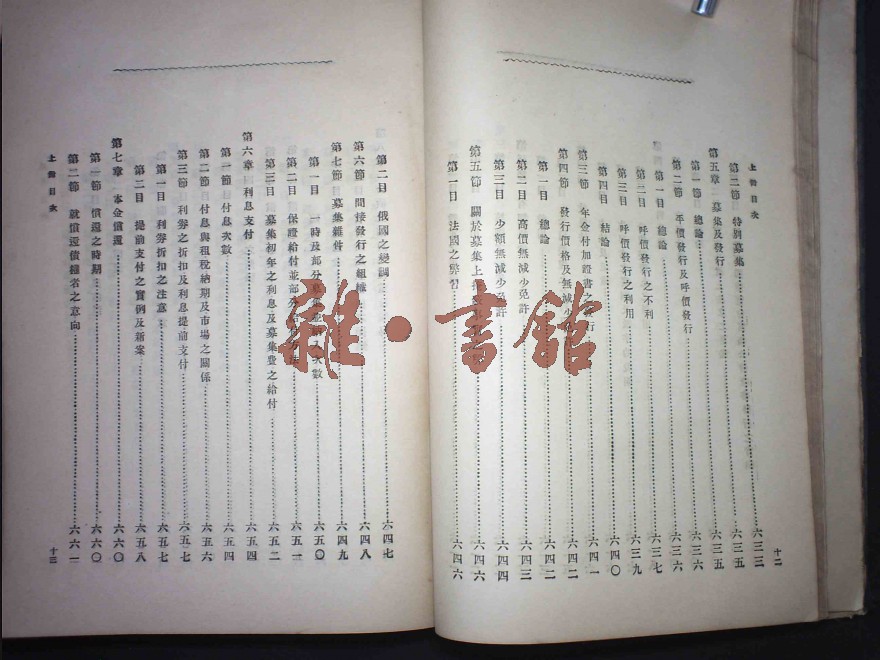 上卷目次
第二節 特別募集 六二三
第五章 募集及發行 六三五
第一節 總論 六三五
第二節 平價發行及呼價發行 六三六
第一目 總論 六三六
第二目 呼價發行之不利 六三七
第三目 呼價發行之利用 六三九
第四目 結論 六四〇
第三節 年金付加證書之 行 六四一
第四節 發行價格及無減少 六四二
第一目 總論 六四二
第二目 高價無減少免許 六四三
第三目 少額無減少免許 六四四
第五節 關於募集上 六四六
第一目 法國之弊習 六四六
十二
第二目 俄國之變調 六四七
第六節 間接發行之組織 六四八
第七節 募集雜件 六四九
第一目 一時及部分 次數 六五〇
第二目 保證給付並部 六五一
第三目 募集初年之利息及募集費之給付 六五二
第六章 利息支付 六五四
第一節 付息次數 六五四
第二節 付息與租稅納期及市場之關係 六五六
第三節 利劵之折扣及利息提前支付 六五七
第一目 利劵折扣之注意 六五七
第二目 提前支付之實例及新案 六五八
第七章 本金償還 六六〇
第一節 償還之時期 六六〇
第二節 就償還債權者之意向 六六一
上卷目次
十三
雜·書館